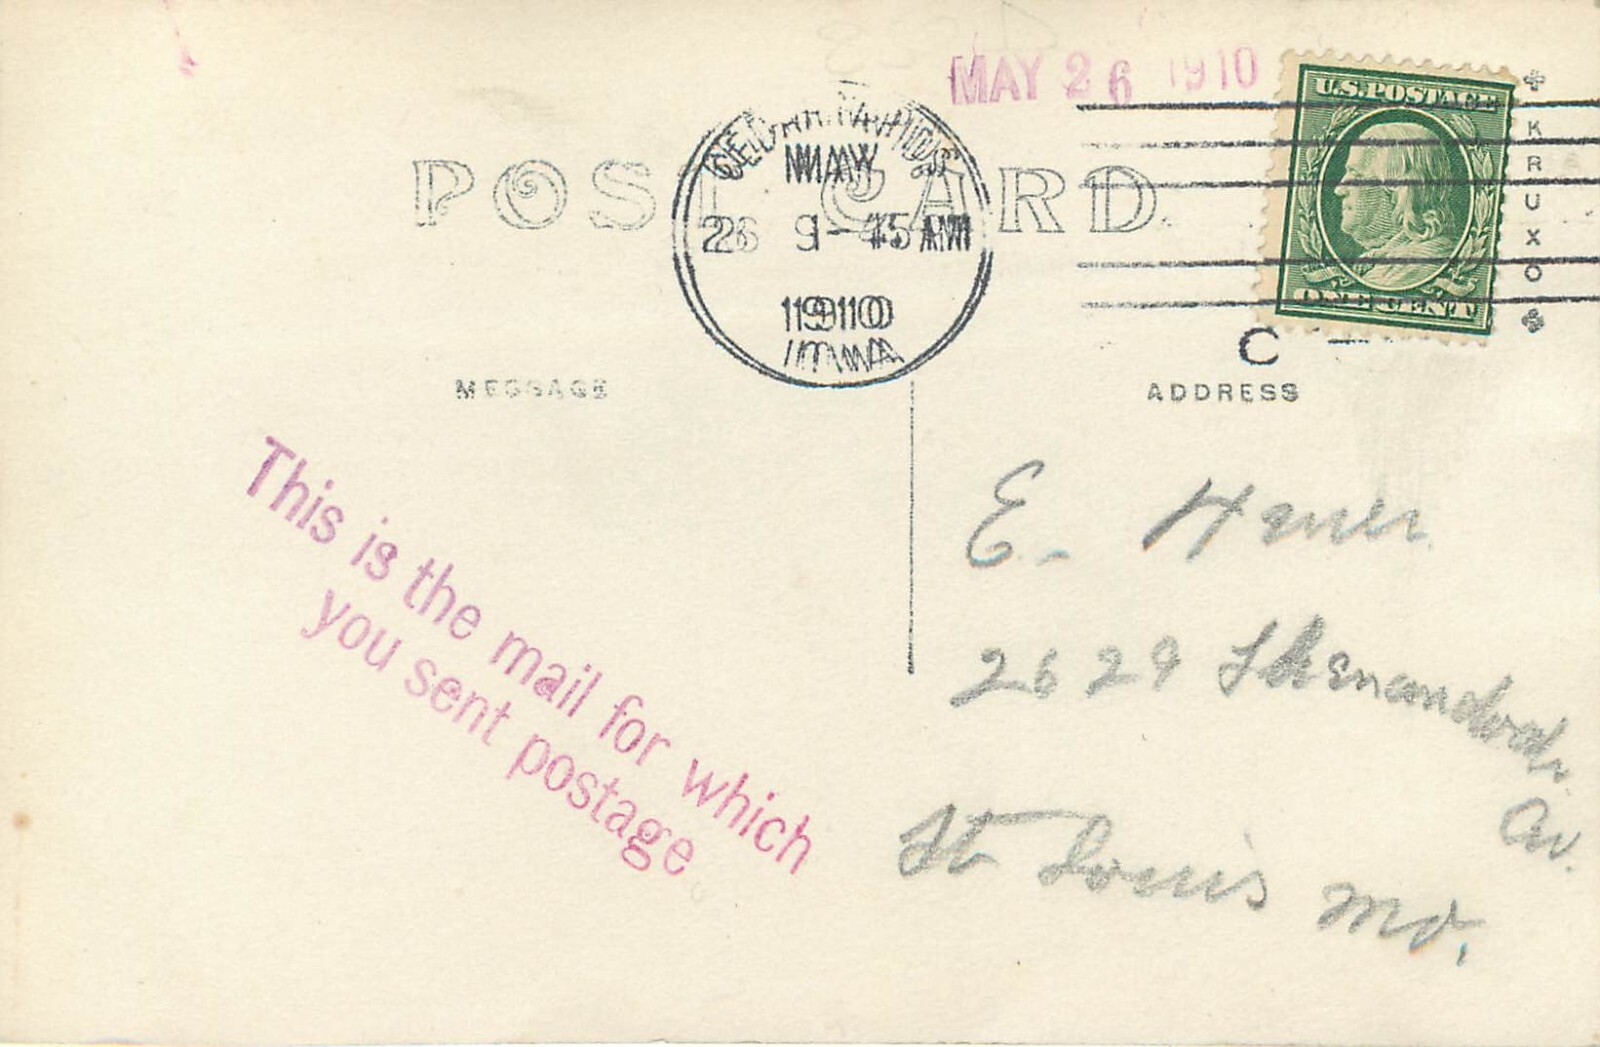 MAY 26 1910
U.S.POSTAGE
ONE CENT
KRUXO
POST CARD
CEDAR RAPIDS
MAY
26 9-45 AM
1910
IOWA
C
MESSAGE
ADDRESS
This is the mail for which
you sent postage
E.
2629 Shenandoah
Av.
St Louis Mo.